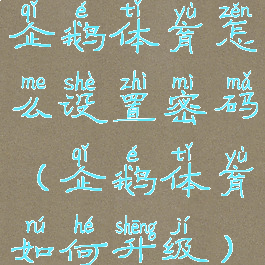 qǐ é tǐ yù zěn
企鹅体育怎
me shè zhì mì mǎ
么设置密码
qǐ é tǐ yù
（企鹅体育
rú hé shēng jí
如何升级）